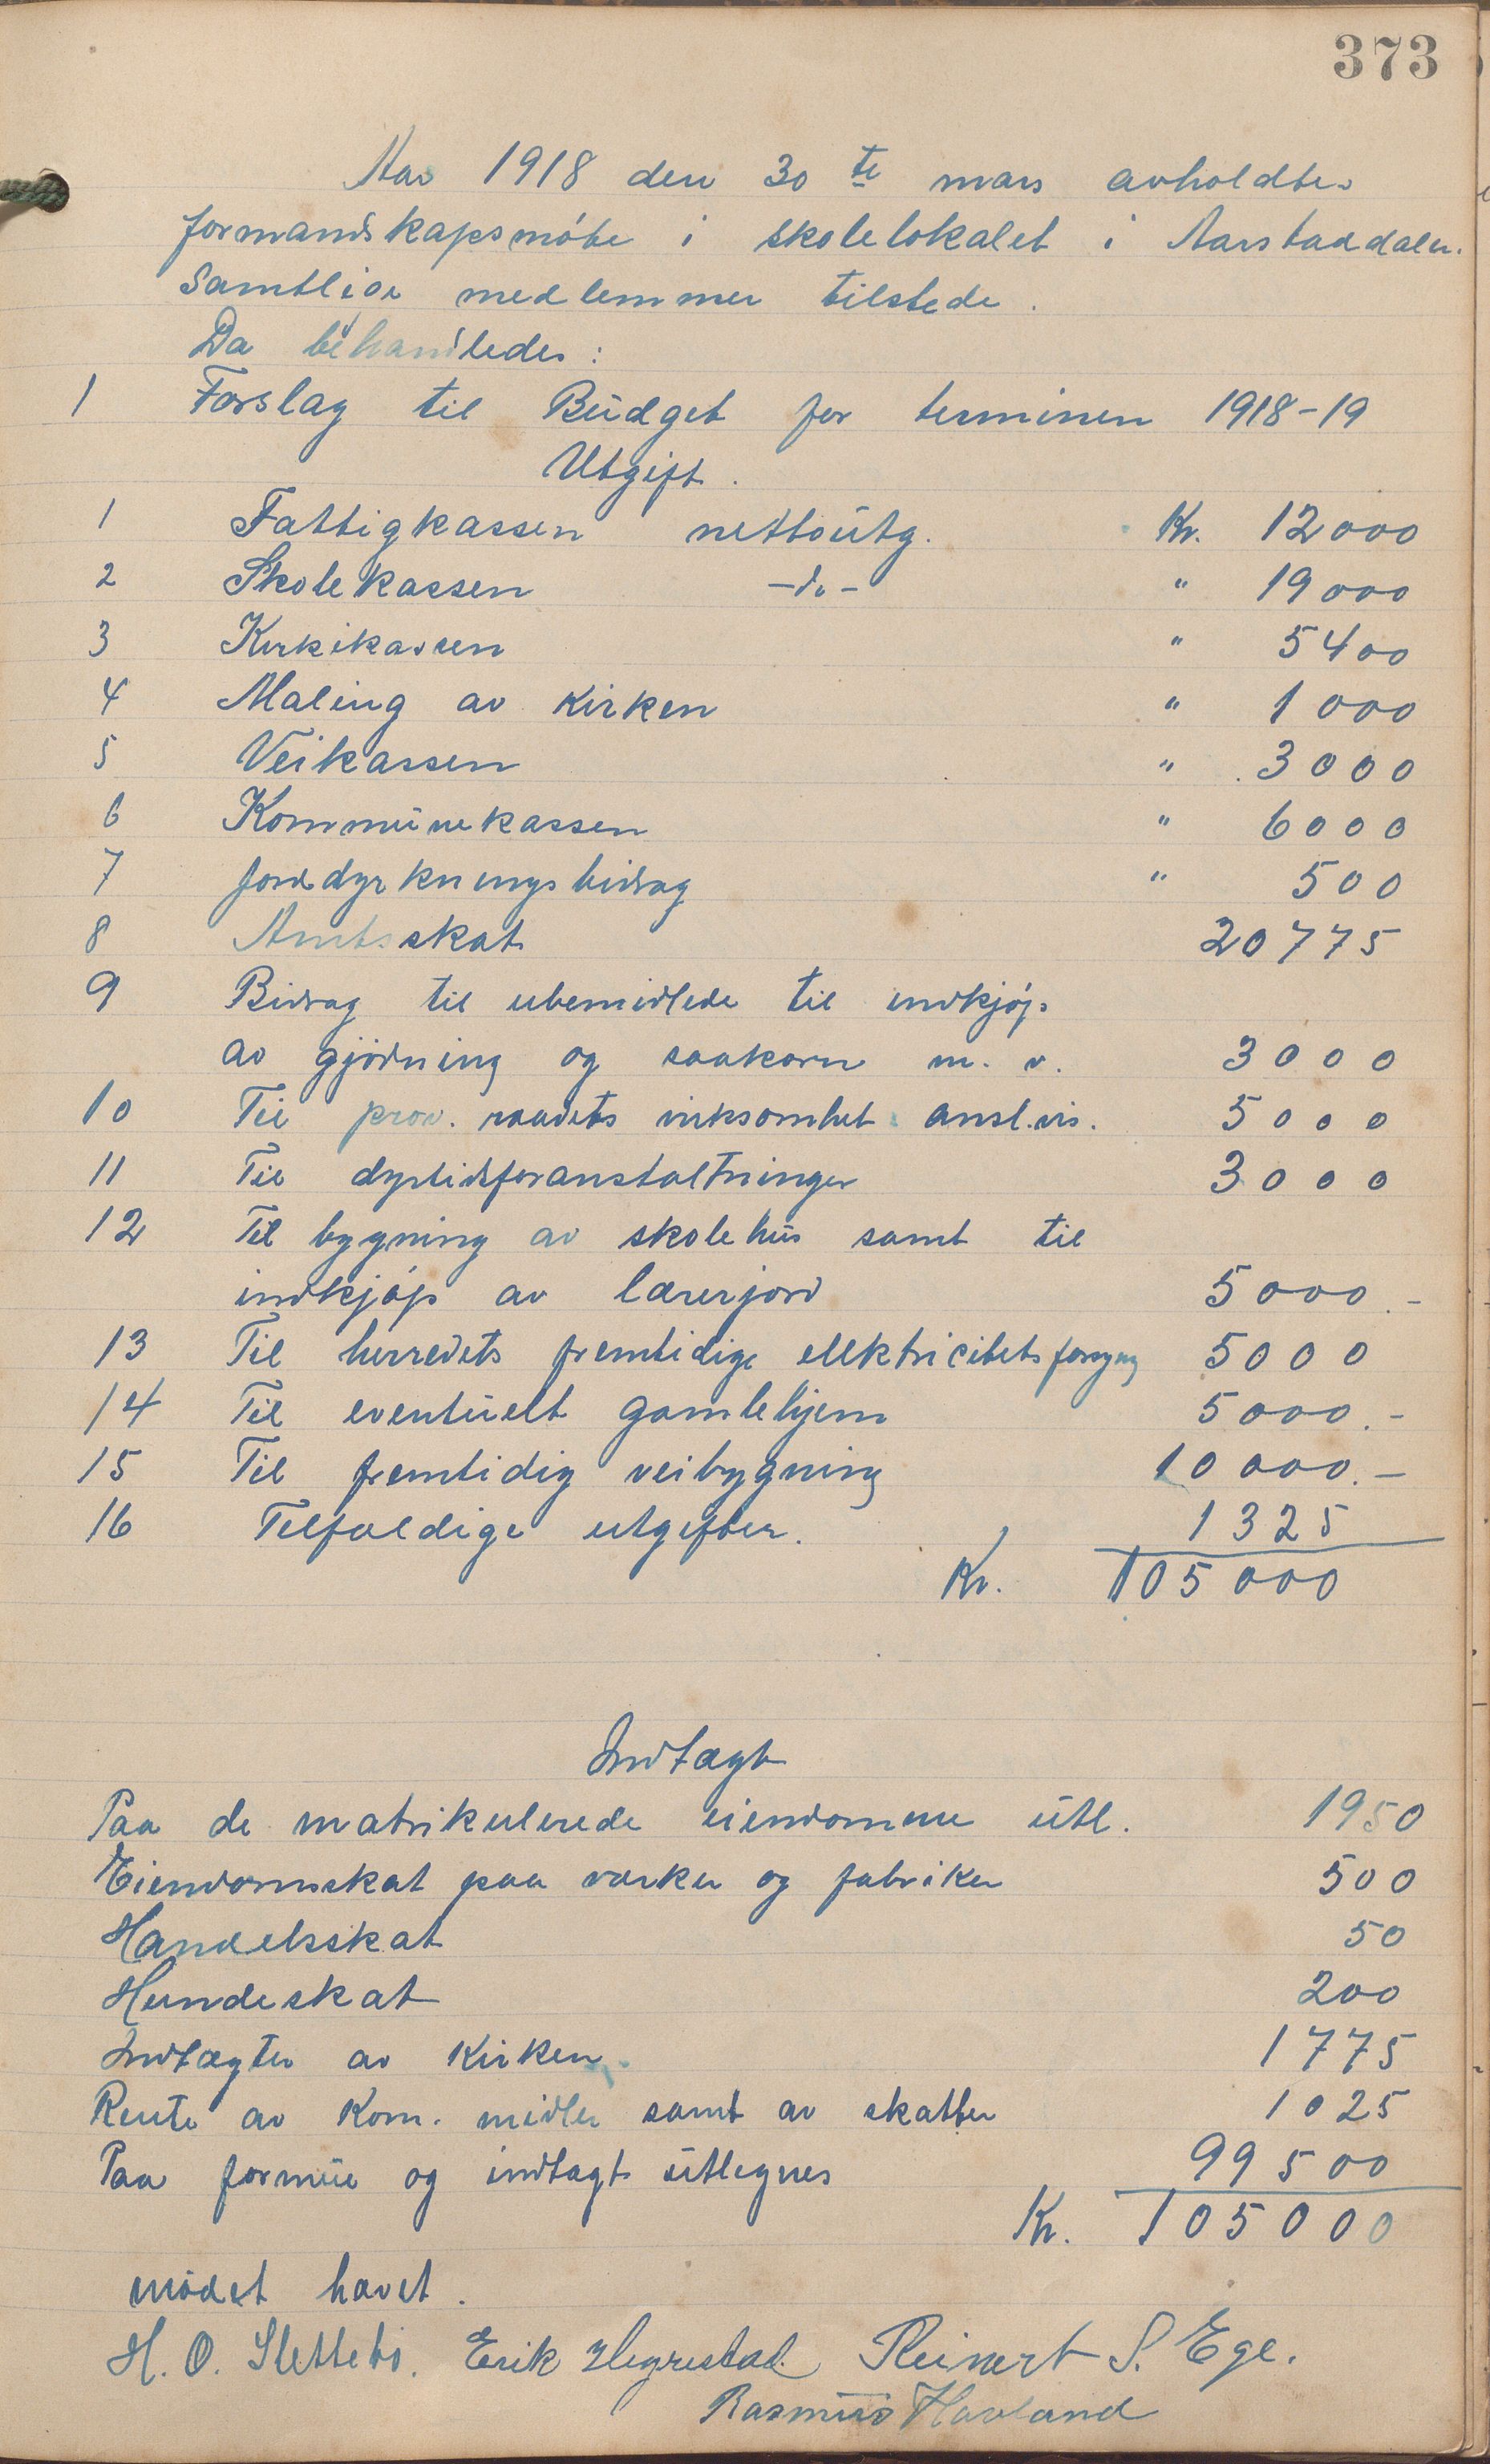 373
Aar 1918 den 30 te mars avholdtes
formandskapsmøte i skolelokalet i Aarstaddalen.
Samtlige medlemmer tilstede.
Da behandledes:
1 Forslag til Budget for terminen 1918-19
Utgift.
1 Fattigkassen nettoutg. Kr. 12000
2 Skolekassen -do- " 19000
3 Kirkekassen " 5400
4 Maling av kirken " 1000
5 Veikassen " 3000
6 Kommunekassen " 6000
7 Jorddyrkningsbidrag " 500
8 Amtsskat 20775
9 Bidrag til ubemidlede til indkjøp
av gjødning og saakorn m. v. 3000
10 Til prov. raadets virksomhet ansl.vis. 5000
11 Til dyrtidsforanstaltninger 3000
12 Til bygning av skolehus samt til
indkjøp av lærerjord 5000.-
13 Til herredets fremtidige elektricitetsforsyng 5000
14 Til eventuelt gamlehjem 5000.-
15 Til fremtidig veibygning 10000.-
16 Tilfældige utgifter. 1325
Kr. 105000
Indtægt
Paa de matrikulerede eiendomme utl. 1950
Eiendomsskat paa verker og fabriker 500
Handelsskat 50
Hundeskat 200
Indtægter av kirken 1775
Rente av kom. midler samt av skatter 1025
Paa formue og indtægt utlegnes 99500
Kr. 105000
mødet hævet.
H. O. Slettebø. Erik Hegrestad. Reinert S. Ege.
Rasmus Havland